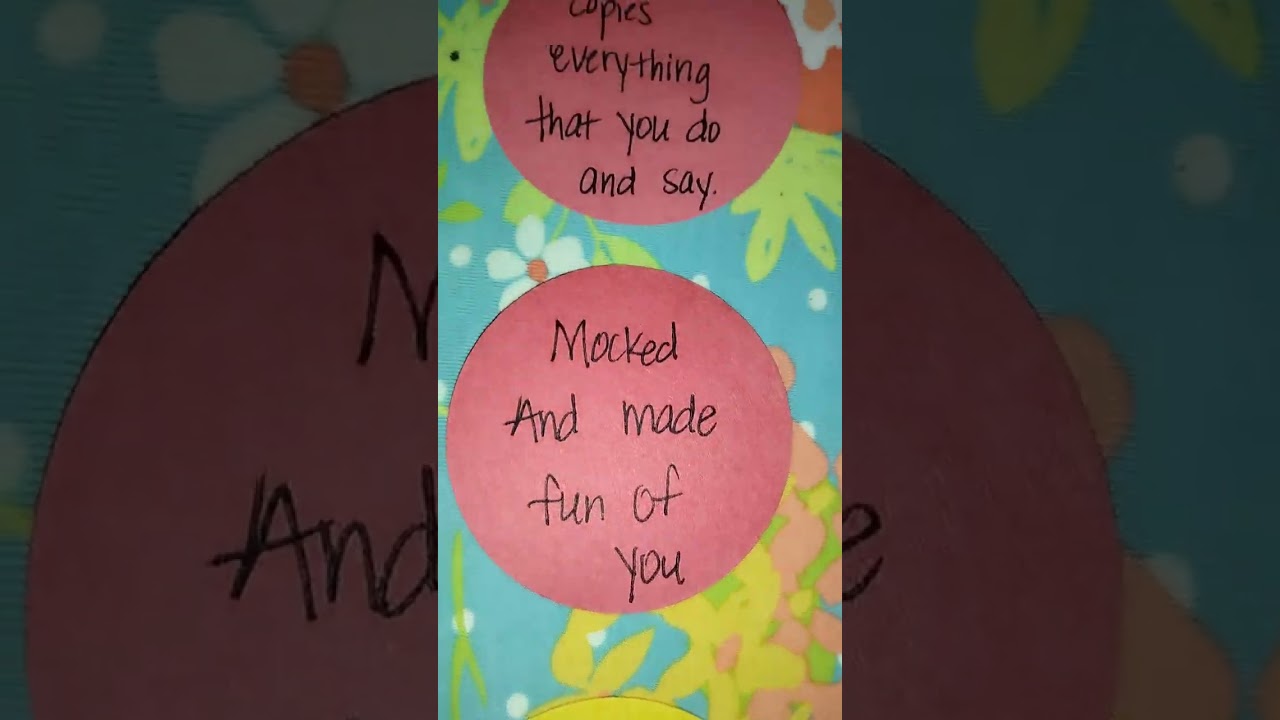 copies
everything
that you do
and say.
Mocked
And made
fun of
you